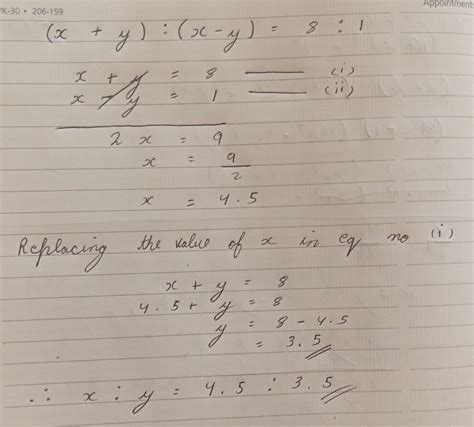 K-30 • 206-159
Appointments
(x + y) : (x - y) = 8 : 1
x + y = 8 —— (i)
x - y = 1 —— (ii)
2 x = 9
x = 9/2
x = 4.5
Replacing the value of x in eq no (i)
x + y = 8
4.5 + y = 8
y = 8 - 4.5
= 3.5
∴ x : y = 4.5 : 3.5